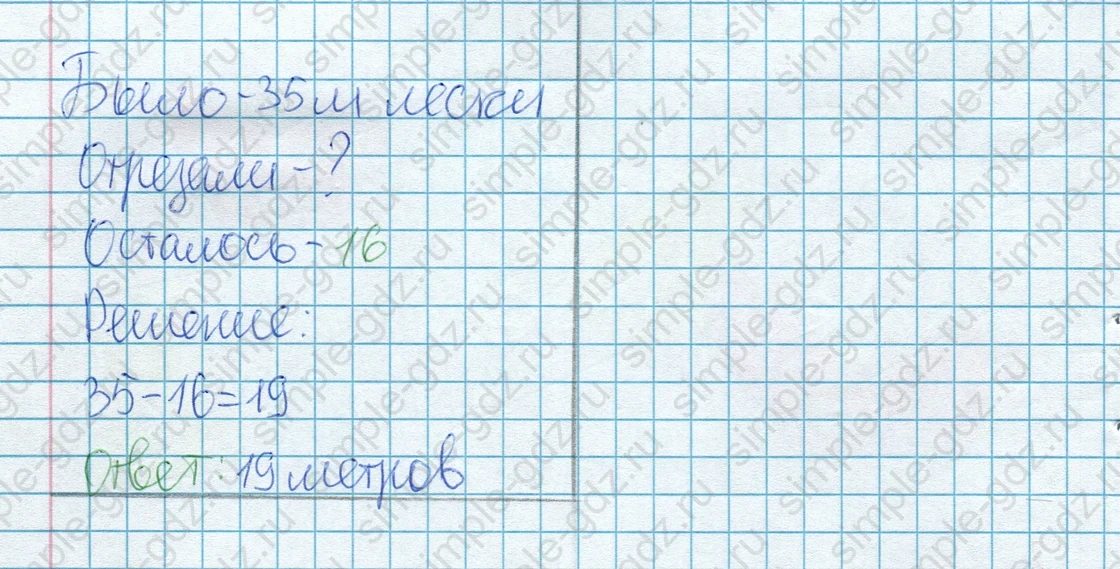 Было - 35 м лески
Отрезали - ?
Осталось - 16
Решение:
35 - 16 = 19
Ответ: 19 метров
simple-gdz.ru